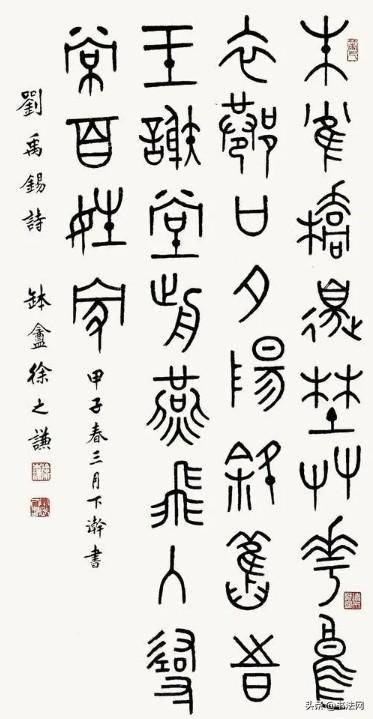 朱雀橋邊埜艸華烏
衣巷口夕陽斜舊旹
王謝堂前燕飛入尋
常百姓家
甲子春三月下澣書
劉禹錫詩 缽盦徐之謙
头条@书法网